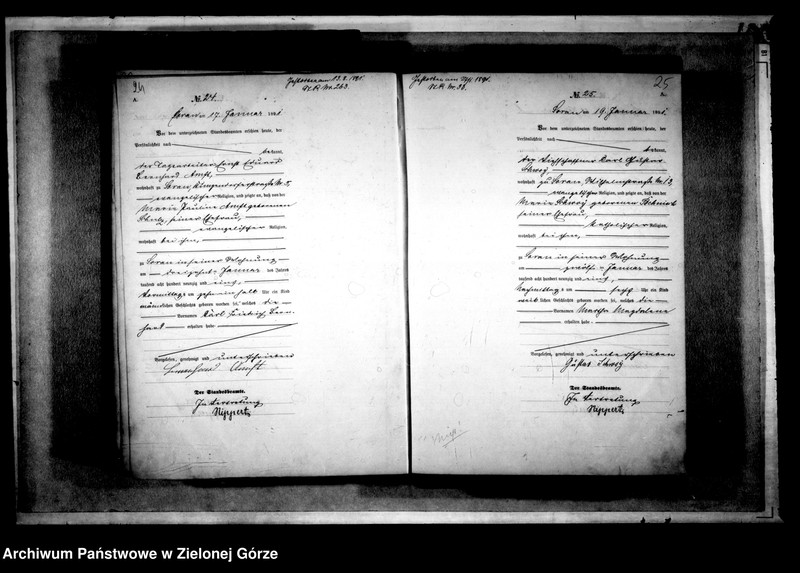 24
Gestorben am 13.8.1891.
N.R. Nr. 263.
A.
№ 24.
Sorau am 17. Januar 1891
Vor dem unterzeichneten Standesbeamten erschien heute, der
Persönlichkeit nach
bekannt,
der Tagearbeiter Ernst Eduard
Leonhard Amft,
wohnhaft zu Sorau,
evangelischer Religion, und zeigte an, daß von der
Marie Pauline Amft geborenen
Schulz, seiner Ehefrau,
evangelischer Religion,
wohnhaft bei ihm,
zu Sorau in seiner Wohnung
am dreizehnten Januar des Jahres
tausend acht hundert neunzig und eins,
Vormittags um zehn ein halb Uhr ein Kind
männlichen Geschlechts geboren worden sei, welches die
Vornamen Karl Friedrich Bern-
hard erhalten habe
Vorgelesen, genehmigt und unterschrieben
Leonhard Amft
Der Standesbeamte.
In Vertretung
Nippert
25
Gestorben am 1891.
N.R. Nr. 38.
A.
№ 25.
Sorau am 19. Januar 1891.
Vor dem unterzeichneten Standesbeamten erschien heute, der
Persönlichkeit nach
bekannt,
der Karl Gustav
wohnhaft zu Sorau, Wilhelmstraße Nr. 13,
evangelischer Religion, und zeigte an, daß von der
Marie geborenen Schmidt
seiner Ehefrau,
katholischer Religion,
wohnhaft bei ihm,
zu Sorau in seiner Wohnung
am zwölften Januar des Jahres
tausend acht hundert neunzig und eins,
Nachmittags um sechs Uhr ein Kind
weiblichen Geschlechts geboren worden sei, welches die
Vornamen Martha Magdalene
erhalten habe
Vorgelesen, genehmigt und unterschrieben
Gustav
Der Standesbeamte.
In Vertretung
Nippert
Archiwum Państwowe w Zielonej Górze